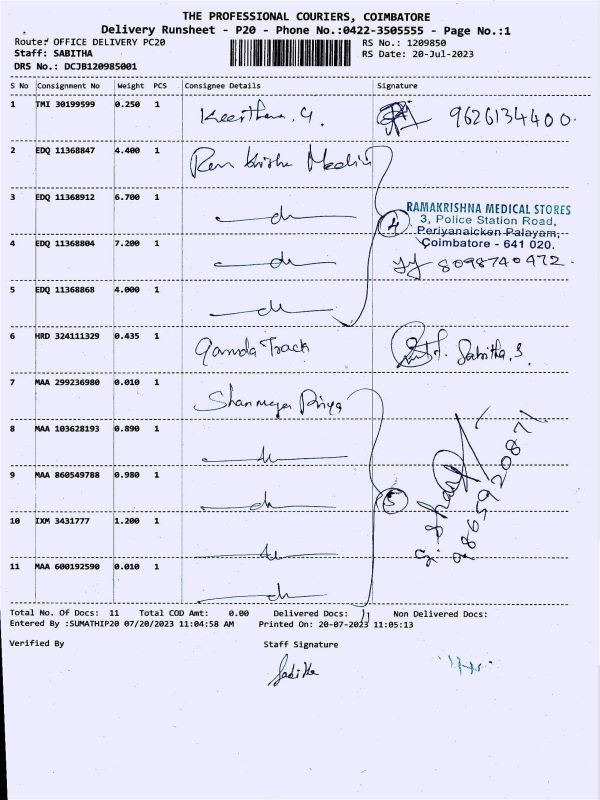 THE PROFESSIONAL COURIERS, COIMBATORE
Delivery Runsheet - P20 - Phone No.:0422-3505555 - Page No.:1
Route: OFFICE DELIVERY PC20 RS No.: 1209850
Staff: SABITHA RS Date: 20-Jul-2023
DRS No.: DCJB120985001
S No Consignment No Weight PCS Consignee Details Signature
1 TMI 30199599 0.250 1 Keerthana. G. 9626134400.
2 EDQ 11368847 4.400 1 Ram Krishna Medical
3 EDQ 11368912 6.700 1 do
RAMAKRISHNA MEDICAL STORES
4 3, Police Station Road,
Periyanaicken Palayam,
4 EDQ 11368804 7.200 1 do Coimbatore - 641 020.
8098740472.
5 EDQ 11368868 4.000 1 do
6 HRD 324111329 0.435 1 Garuda Track Sabitha. S.
7 MAA 299236980 0.010 1 Shanmuga Priya
8 MAA 103628193 0.890 1 do
9 MAA 860549788 0.980 1 do 5
10 IXM 3431777 1.200 1 do
9865920871
11 MAA 600192590 0.010 1 do
Total No. Of Docs: 11 Total COD Amt: 0.00 Delivered Docs: 11 Non Delivered Docs:
Entered By :SUMATHIP20 07/20/2023 11:04:58 AM Printed On: 20-07-2023 11:05:13
Verified By Staff Signature
Sabitha